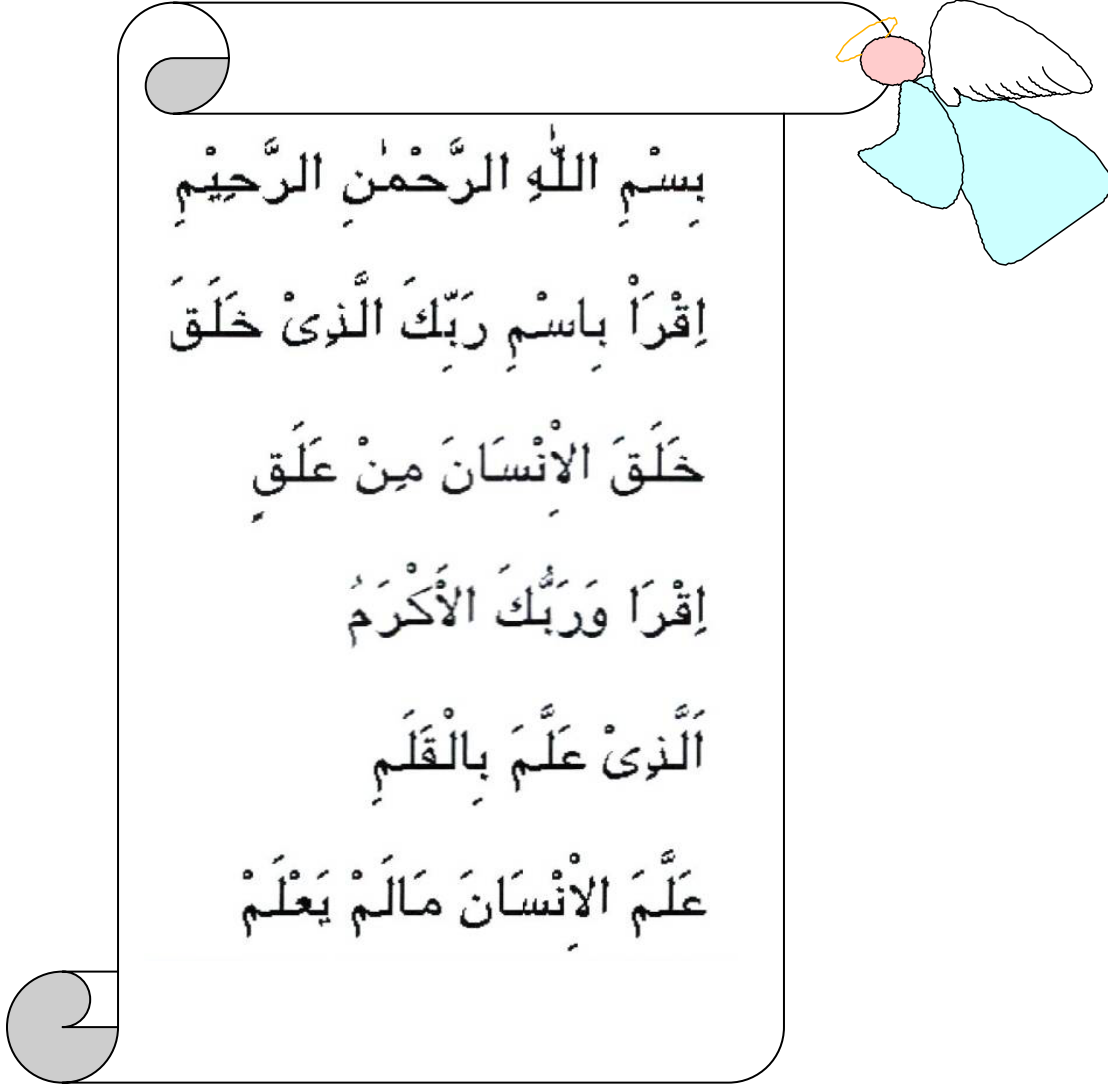 بِسْمِ اللّٰهِ الرَّحْمٰنِ الرَّحِيْمِ
اِقْرَاْ بِاسْمِ رَبِّكَ الَّذِىْ خَلَقَ
خَلَقَ الاِْنْسَانَ مِنْ عَلَقٍ
اِقْرَا وَرَبُّكَ الاَْكْرَمُ
اَلَّذِىْ عَلَّمَ بِالْقَلَمِ
عَلَّمَ الاِْنْسَانَ مَالَمْ يَعْلَمْ